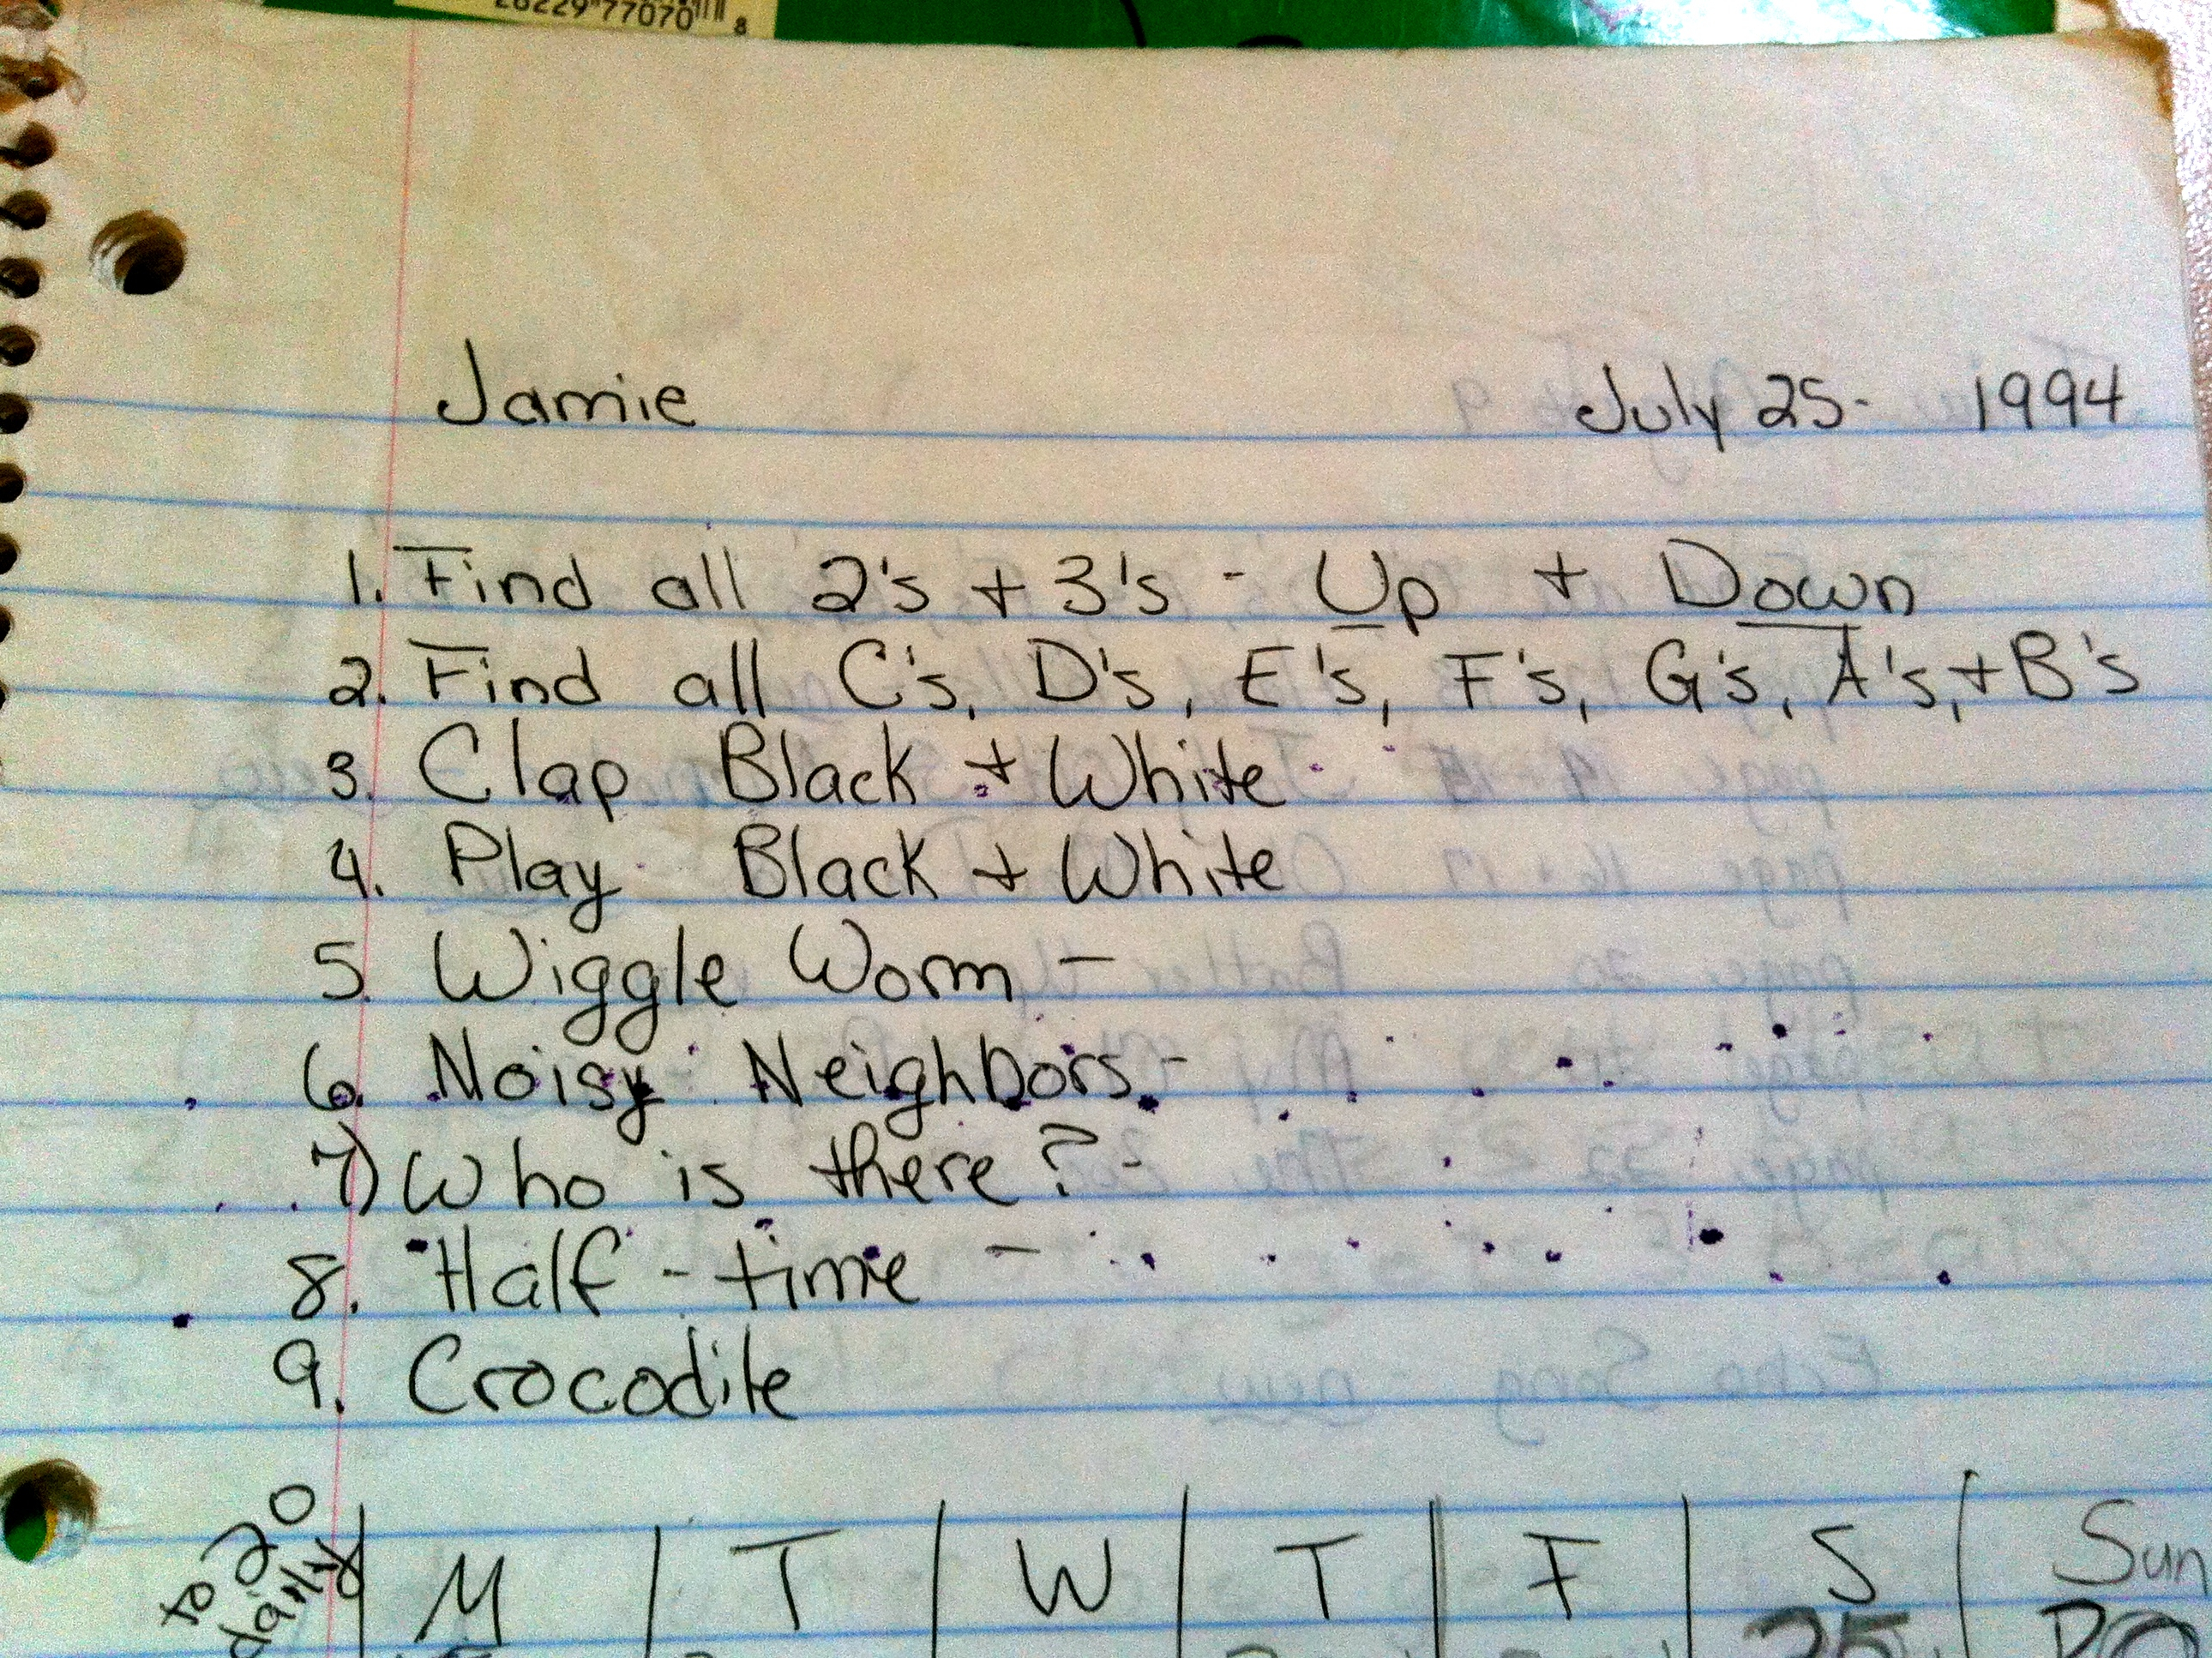 77070
8
Jamie July 25- 1994
1. Find all 2's + 3's - Up + Down
2. Find all C's, D's, E's, F's, G's, A's, + B's
3. Clap Black + White
4. Play Black + White
5. Wiggle Worm -
6. Noisy Neighbors -
7) Who is there? -
8. Half - time -
9. Crocodile
to 20
daily
M T W T F S Sun
25